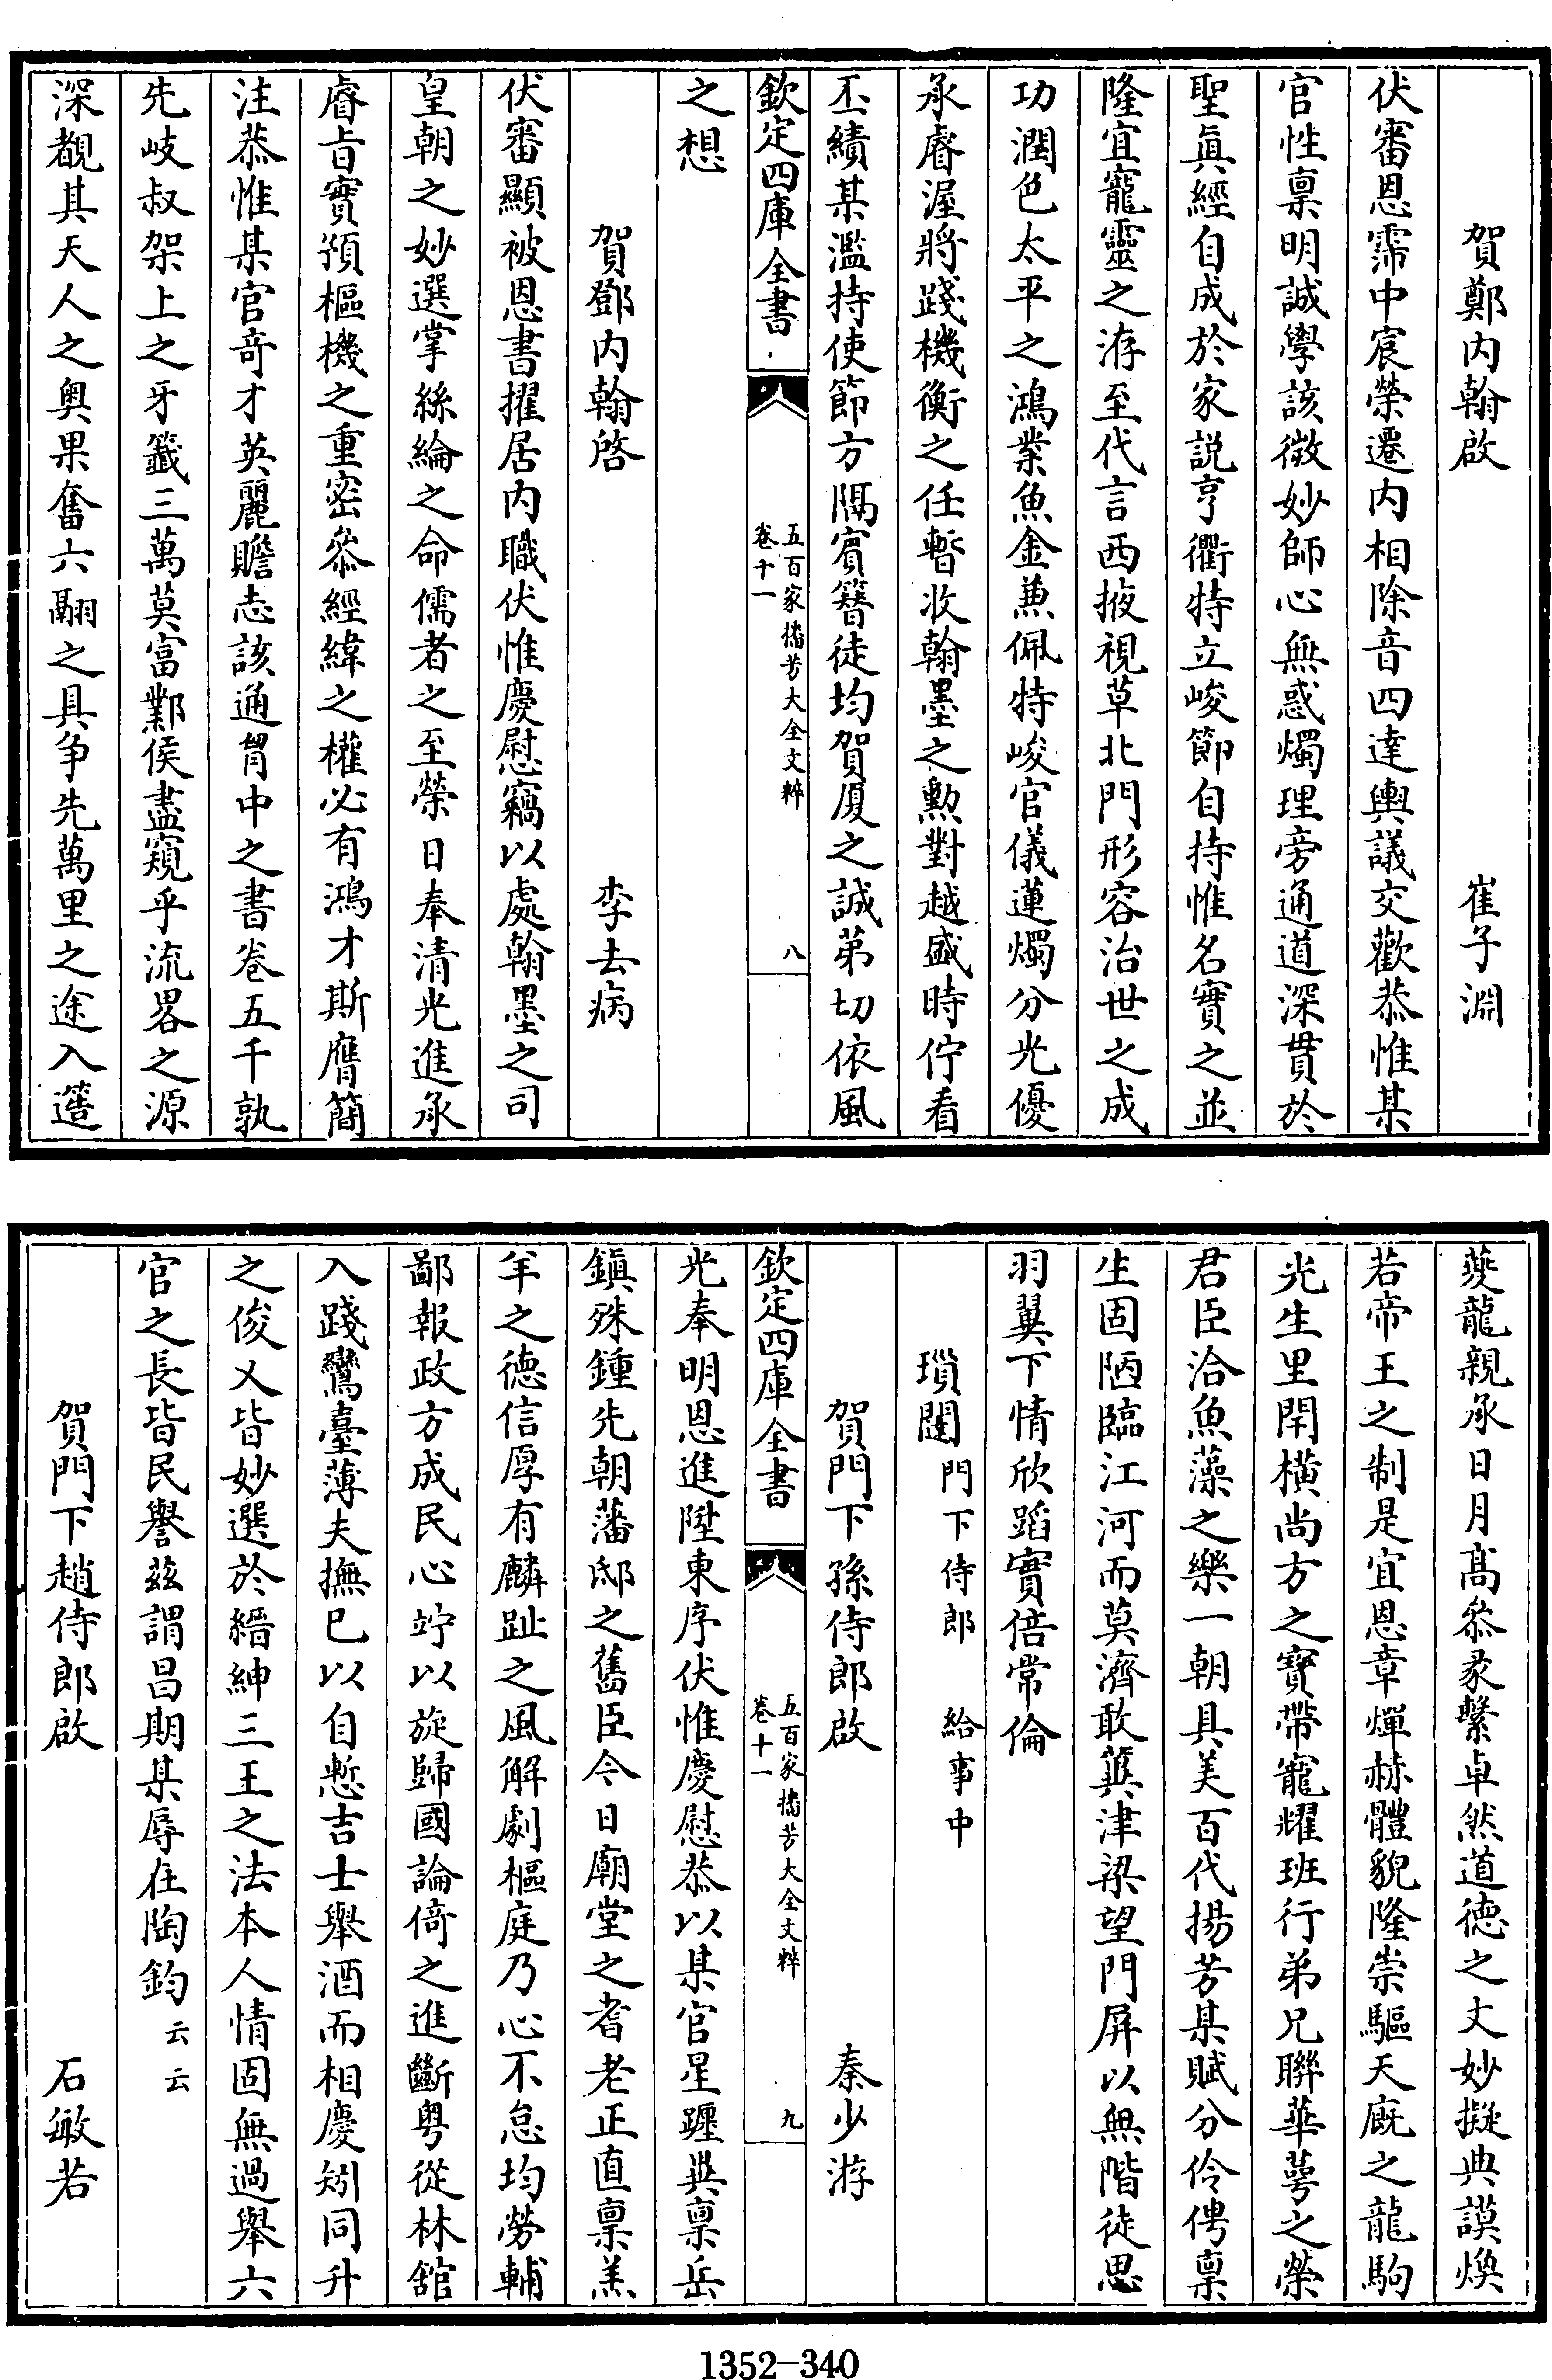 賀鄭内翰啟　崔子淵
伏審恩霈中宸榮遷内相除音四達輿議交歡恭惟某
官性禀明誠學該微妙師心無惑燭理旁通道深貫於
聖眞經自成於家説亨衢特立峻節自持惟名實之並
隆宜寵靈之洊至代言西掖視草北門形容治世之成
功潤色太平之鴻業魚金兼佩特峻官儀蓮燭分光優
承睿渥將踐機衡之任暫收翰墨之勲對越盛時佇看
丕績某濫持使節方隔賓簪徒均賀厦之誠苐切依風
欽定四庫全書　五百家播芳大全文粹　卷十一　八
之想
賀鄧内翰啓　李去病
伏審顯被恩書擢居内職伏惟慶慰竊以處翰墨之司
皇朝之妙選掌絲綸之命儒者之至榮日奉清光進承
睿旨實預樞機之重密叅經緯之權必有鴻才斯膺簡
注恭惟某官竒才英麗贍志該通胷中之書卷五千孰
先岐叔架上之牙籖三萬莫富鄴侯盡窺乎流畧之源
深覩其天人之奥果奮六翮之具争先萬里之途入簉
夔龍親承日月髙叅彖繫卓然道德之文妙擬典謨焕
若帝王之制是宜恩章燀赫體貌隆崇驅天廐之龍駒
光生里閈横尚方之寳帶寵耀班行弟兄聯華萼之榮
君臣洽魚藻之樂一朝具美百代揚芳某賦分伶俜禀
生固陋臨江河而莫濟敢兾津梁望門屏以無階徒思
羽翼下情欣蹈實倍常倫
瑣闥　門下侍郎　給事中
賀門下孫侍郎啟　秦少游
欽定四庫全書　五百家播芳大全文粹　卷十一　九
光奉明恩進陞東序伏惟慶慰恭以某官星躔異禀岳
鎮殊鍾先朝藩邸之舊臣今日廟堂之耆老正直禀羔
羊之德信厚有麟趾之風解劇樞庭乃心不怠均勞輔
鄙報政方成民心竚以旋歸國論倚之進斷粤從林舘
入踐鸞臺薄夫撫已以自慙吉士舉酒而相慶矧同升
之俊乂皆妙選於縉紳三王之法本人情固無過舉六
官之長皆民譽兹謂昌期某辱在陶鈞云云
賀門下趙侍郎啟　石敏若
1352-340